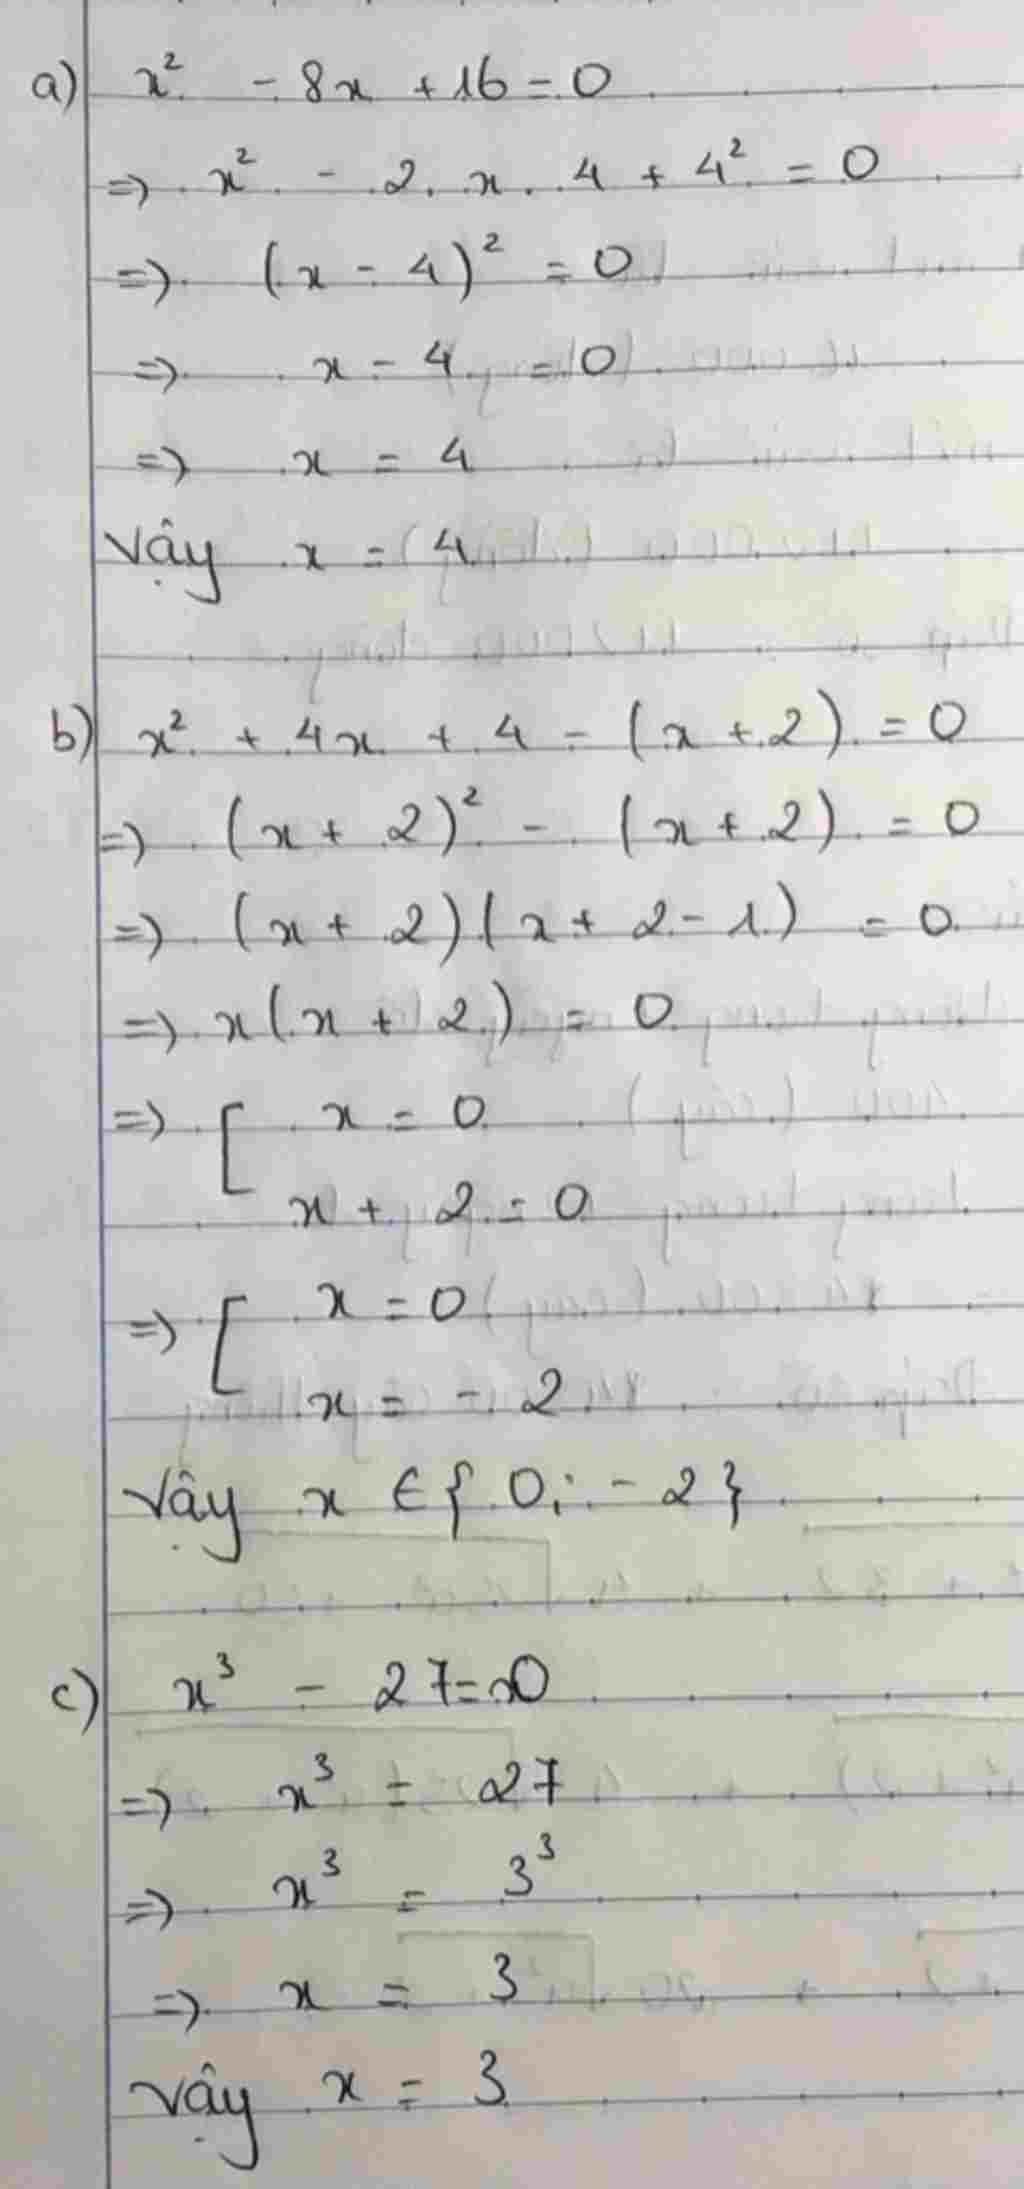 a) x² - 8x + 16 = 0
=> x² - 2. x. 4 + 4² = 0
=> (x - 4)² = 0
=> x - 4 = 0
=> x = 4
Vậy x = 4
b) x² + 4x + 4 - (x + 2) = 0
=> (x + 2)² - (x + 2) = 0
=> (x + 2)(x + 2 - 1) = 0
=> x(x + 2) = 0
=> [ x = 0
x + 2 = 0
=> [ x = 0
x = - 2
Vậy x ∈ { 0; - 2 }
c) x³ - 27 = 0
=> x³ = 27
=> x³ = 3³
=> x = 3
Vậy x = 3